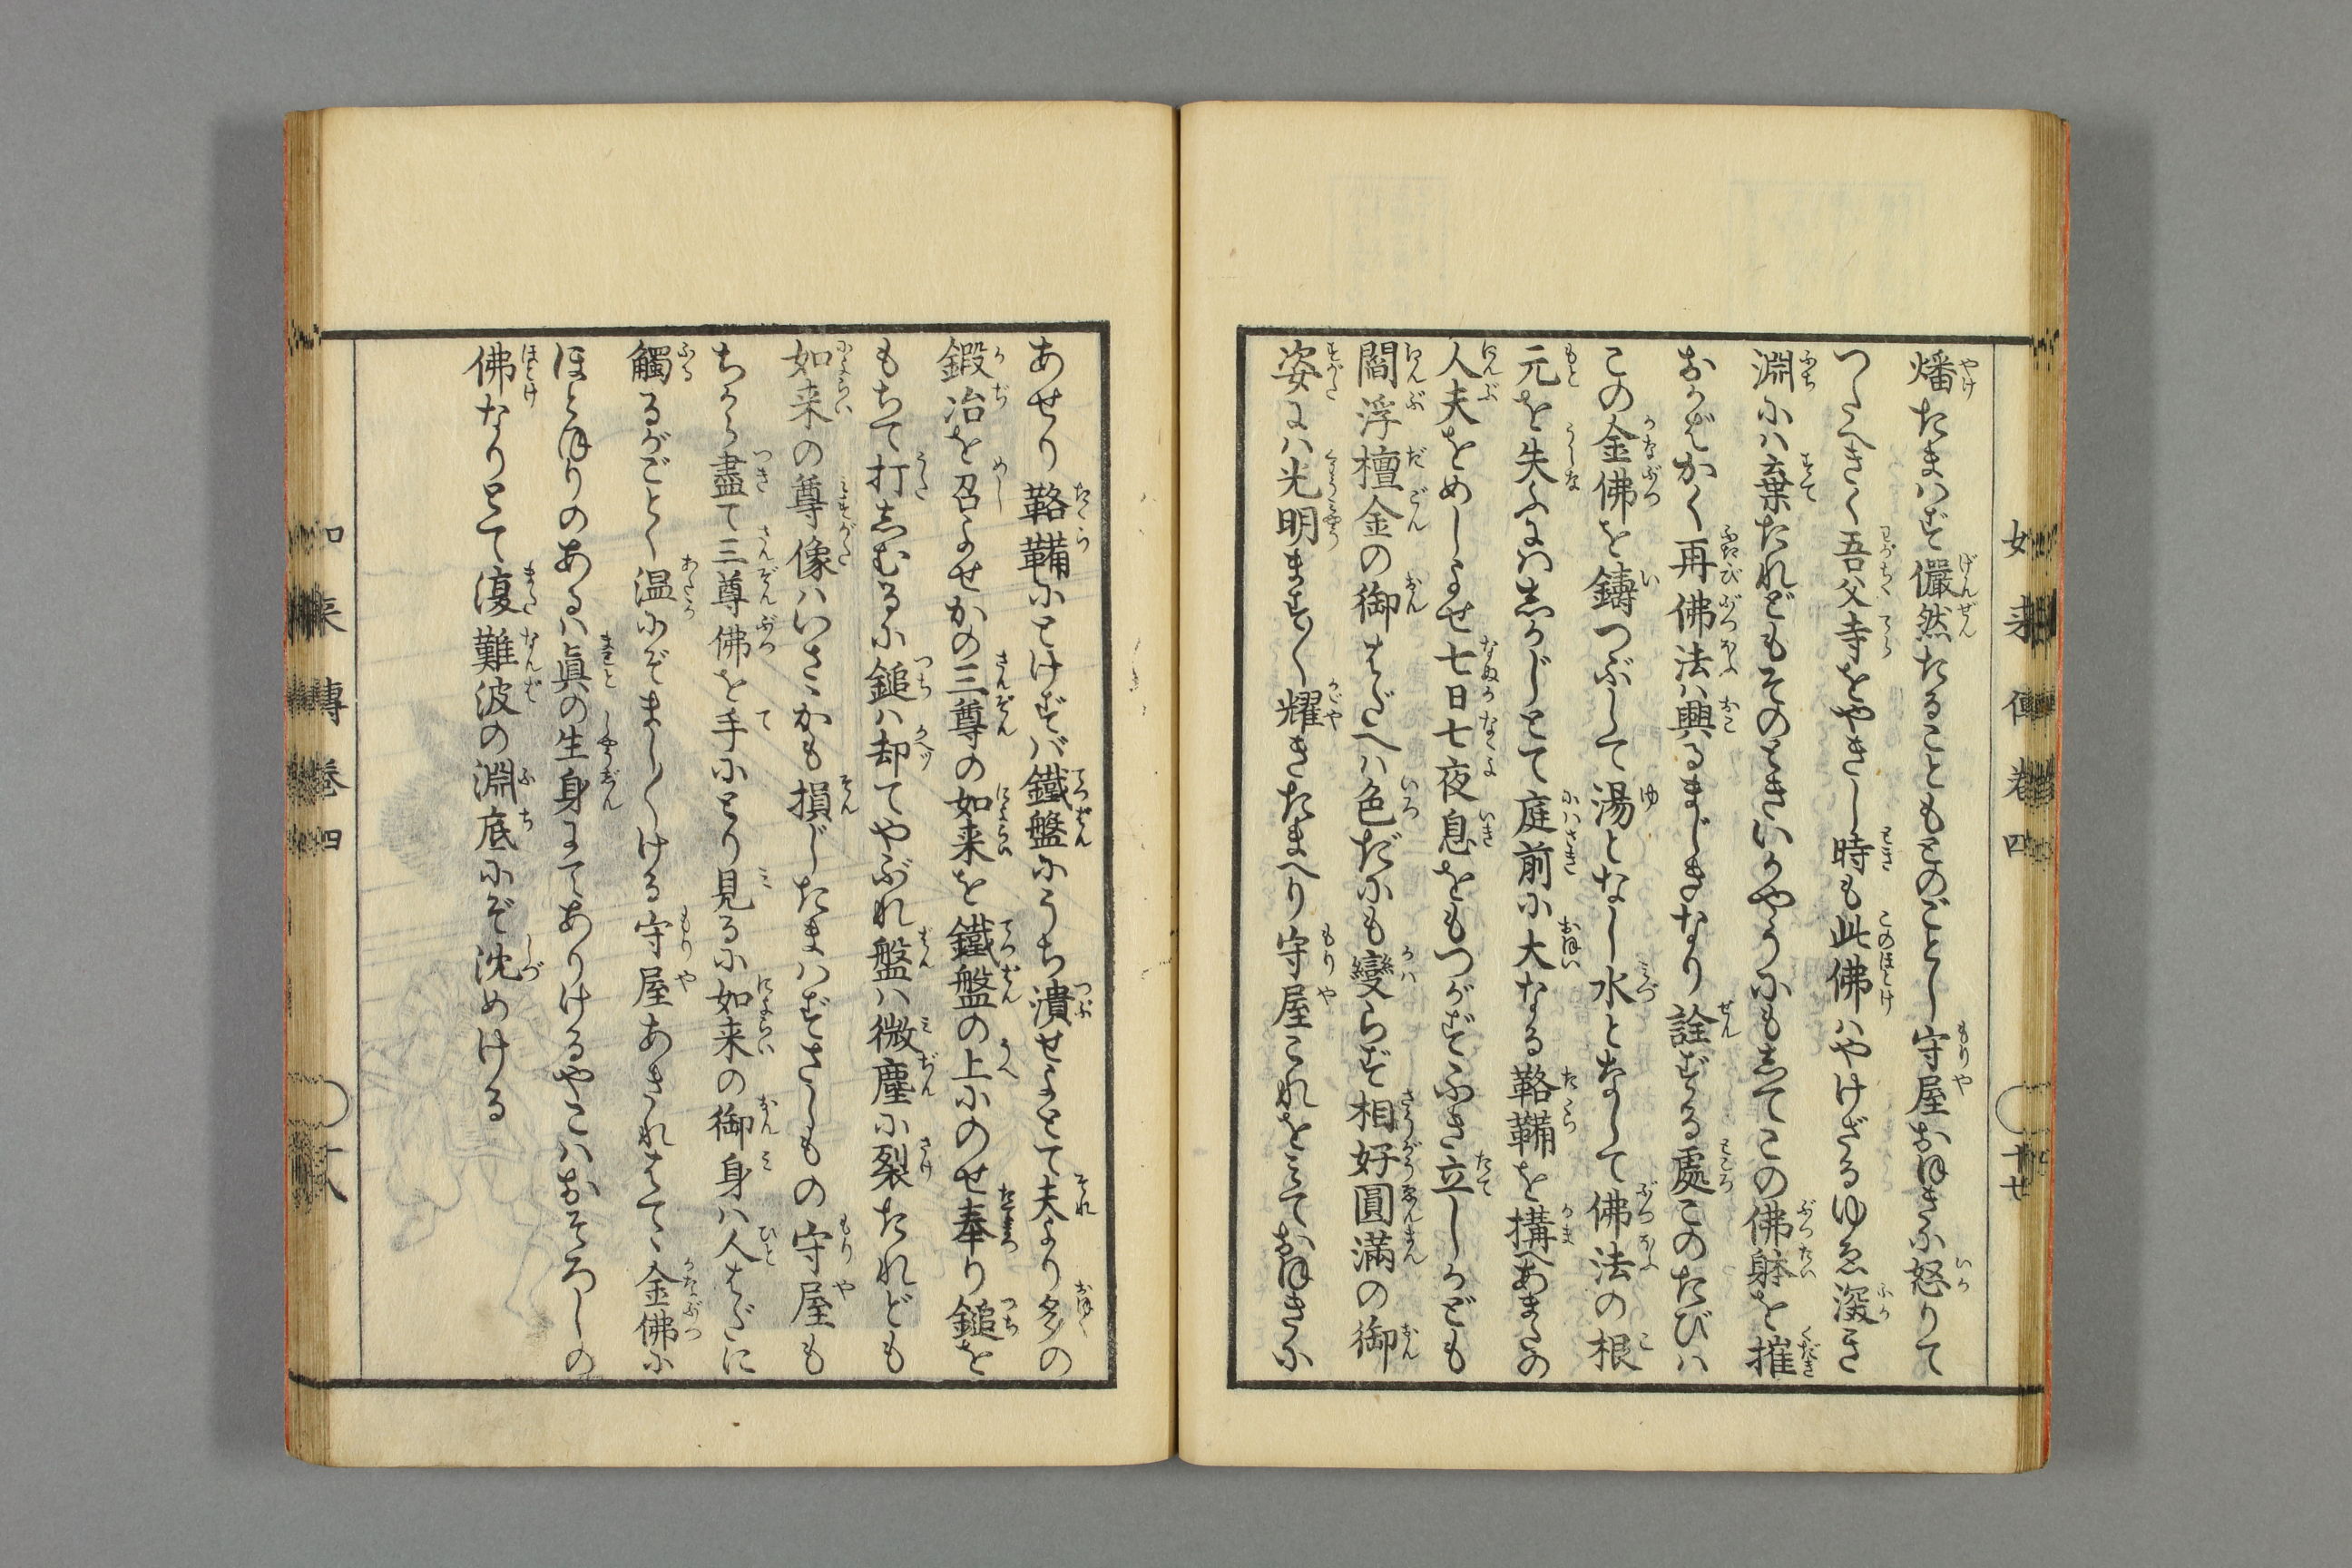 燔たまはず儼然たることもとのごとし守屋おほきに怒りて
つたへきく吾父寺をやきし時も此佛はやけざるゆゑ深き
淵には棄たれどもそのときいかやうにも志てこの佛躰を摧
おかばかく再佛法は興るまじきなり詮ずる處このたびは
この金佛を鑄つぶして湯となし水となして佛法の根
元を失ふには志かじとて庭前に大なる鞴鞴を搆へあまたの
人夫をめしよせ七日七夜息をもつがずふき立しかども
閻浮檀金の御はだへは色だにも變らず相好圓滿の御
姿には光明ます〱耀きたまへり守屋これをみておほきに
如来傳巻四
あせり鞴鞴にとけずバ鐵盤にうち潰せよとて夫より多の
鍜冶を召よせかの三尊の如来を鐵盤の上にのせ奉り鎚を
もちて打志むるに鎚は却てやぶれ盤は微塵に裂たれども
如来の尊像はいさゝかも損じたまはずさしもの守屋も
ちから盡て三尊佛を手にとり見るに如来の御身は人はだに
觸るがごとく温にぞまし〱ける守屋あきれはてゝ金佛に
ほとほりのあるは眞の生身にてありけるやこはおそろしの
佛なりとて復難波の淵底にぞ沈めける
如来傳巻四